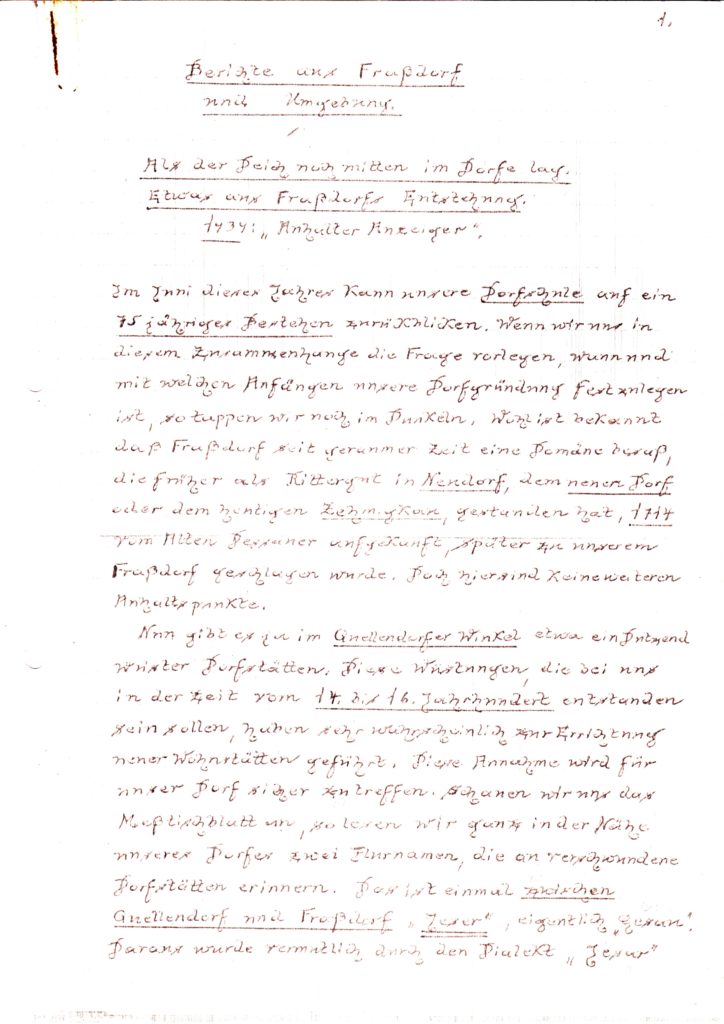 1.
Berichte aus Fraßdorf
und Umgebung.
Als der Deich noch mitten im Dorfe lag.
Etwas aus Fraßdorfs Entstehung.
1934: „Anhalter Anzeiger".
Im Juni dieses Jahres kann unsere Dorfschule auf ein
75 jähriges Bestehen zurückblicken. Wenn wir uns in
diesem Zusammenhange die Frage vorlegen, wann und
mit welchen Anfängen unsere Dorfgründung festzulegen
ist, so tappen wir noch im Dunkeln. Wohl ist bekannt
daß Fraßdorf seit geraumer Zeit eine Domäne besaß,
die früher als Rittergut in Neudorf, dem neuen Dorf
oder dem heutigen Zehmigkau, gestanden hat, 1714
vom Alten Dessauer aufgekauft, später zu unserem
Fraßdorf geschlagen wurde. Doch hier sind keine weiteren
Anhaltspunkte.
Nun gibt es ja im Quellendorfer Winkel etwa ein Dutzend
wüster Dorfstätten. Diese Wüstungen, die bei uns
in der Zeit vom 14. bis 16. Jahrhundert entstanden
sein sollen, haben sehr wahrscheinlich zur Errichtung
neuer Wohnstätten geführt. Diese Annahme wird für
unser Dorf sicher zutreffen. Schauen wir uns das
Meßtischblatt an, so lesen wir ganz in der Nähe
unseres Dorfes zwei Flurnamen, die an verschwundene
Dorfstätten erinnern. Das ist einmal zwischen
Quellendorf und Fraßdorf „Jeser", eigentlich „Jesau".
Daraus wurde vermutlich durch den Dialekt „Jesar"